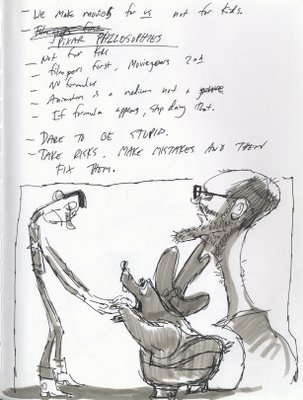 - We make movies for us not for kids.
- Filmgoers first
PIXAR PHILOSOPHIES
- Not for kids
- filmgoers first, Moviegoers 2nd
- No formulas
- Animation is a medium not a
- If formula appears, stop doing that.
- DARE TO BE STUPID.
- TAKE RISKS. MAKE MISTAKES AND THEN
FIX THEM.